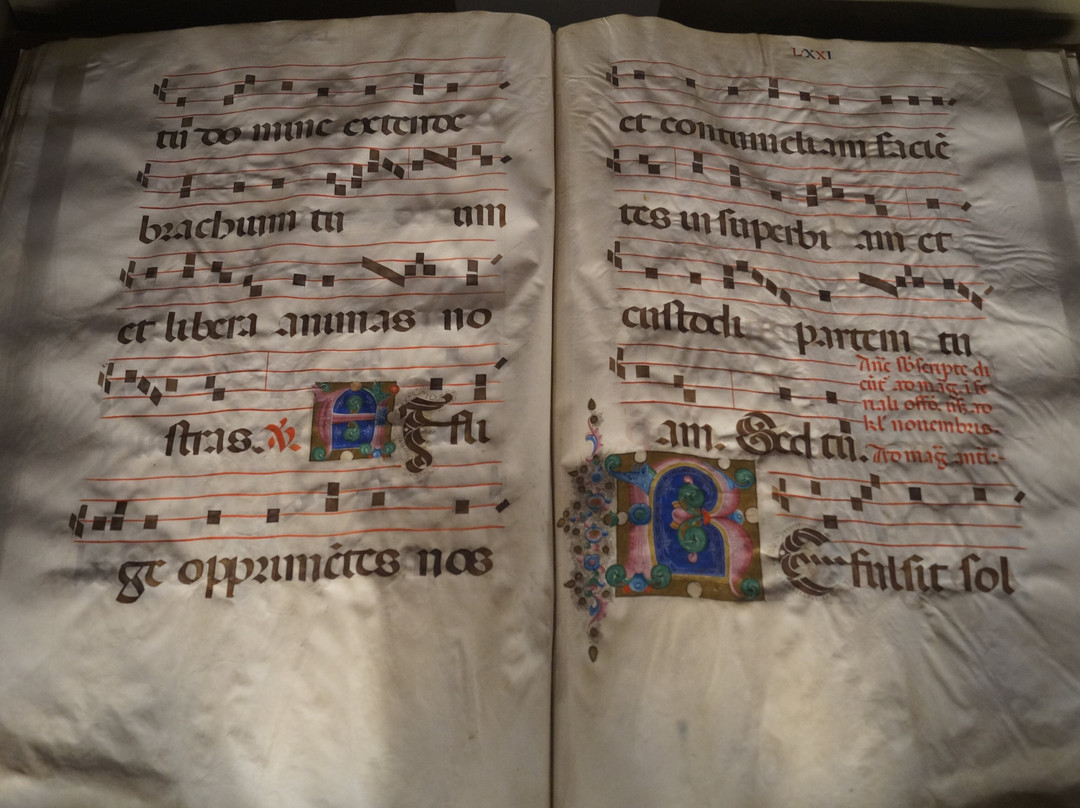 tū do nunc extende
brachium tu um
et libera animas no
stras. ℣. A Ffli
ge opprimētes nos
LXXI
et contumeliam faciē
tes in superbi am et
custodi partem tu
am. Sed tū.
Añe sb̄scripte di
cūt̄ ao mag. i se
kl̄ novembris.
Ao mag. ant:-
R Efulsit sol